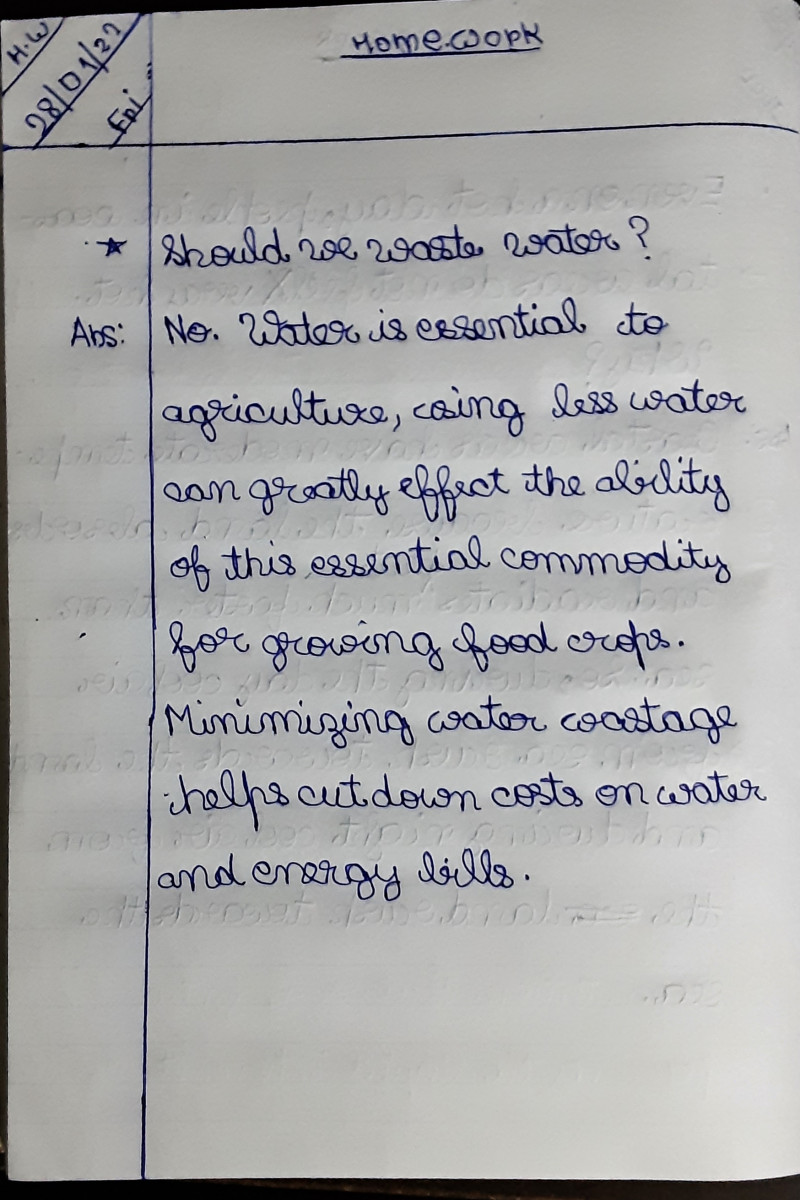 H.W
28/01/22
Fri
Homework
* Should we waste water?
Ans: No. Water is essential to
agriculture, using less water
can greatly effect the ability
of this essential commodity
for growing food crops.
Minimizing water wastage
helps cut down costs on water
and energy bills.